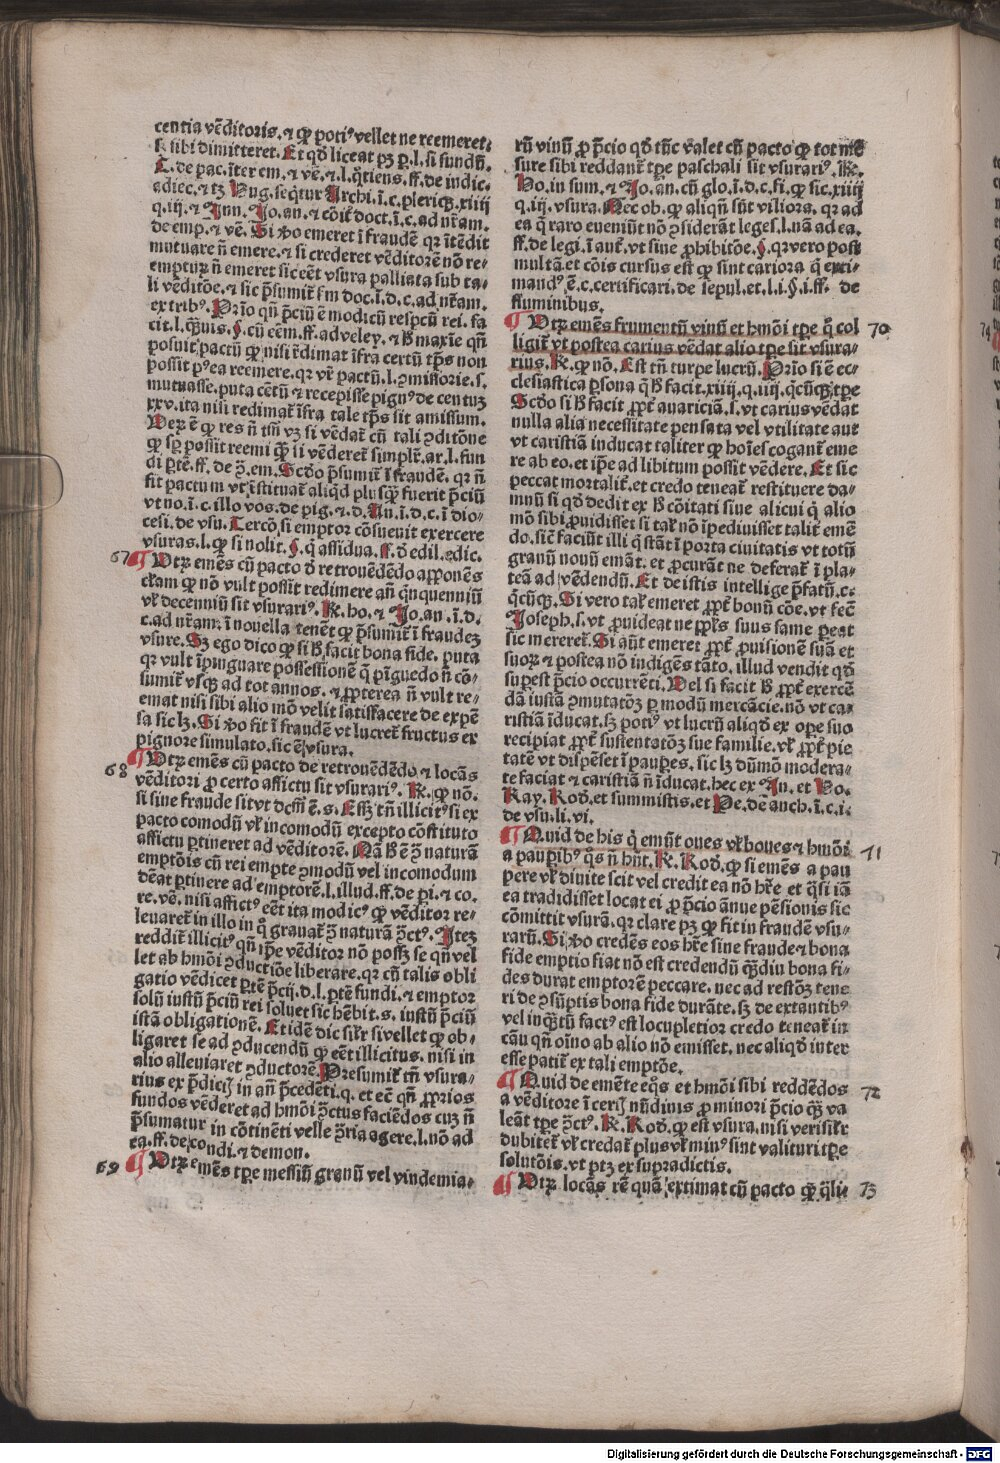 centia vēditoris. ⁊ ꝙ potiꝰ vellet ne reemeret.
⁊ sibi dimitteret. Et qđ liceat pꝫ p. l. si fundū.
C. de pac. īter em. ⁊ vē. ⁊ l. q̄tiens. ff. de indic.
adiec. ⁊ tꝫ Hug. seq̄tur Archi. ī. c. pleriqꝫ. xiiij
q. iij. ⁊ Inn. Jo. an. ⁊ cōit̄ doct. ī. c. ad nr̄am.
de emp. ⁊ vē. Si ꝟo emeret ī fraudē qꝛ ītēdit
mutuare ñ emere. ⁊ si crederet vēditorē nō re⸗
empturꝫ ñ emeret sic eēt vsura palliata sub ta⸗
li vēditōe. ⁊ sic p̄sumit̄ fm doc. ī. d. c. ad nr̄am.
ex tribꝰ. Prīo qñ p̄ciū ē modicū respcū rei. fa
cit. l. qꝫuis. §. cū cēm. ff. ad veley. ⁊ hꝰ maxīe qñ
posuit pactū ꝙ nisi r̄dimat īfra certū tp̄s non
possit pꝰea reemere. qꝛ vr̄ pactū. l. ꝯmissorie. s.
mutuasse. puta cētū ⁊ recepisse pignꝰ de centuꝫ
xxv. ita nisi redimat̄ īfra tale tp̄s sit amissum.
Verꝫ ē ꝙ res ñ tñ vꝫ si vēdat̄ cū tali ꝯditōne
ꝙ sp̄ possit reemi qꝫ si vēderet̄ simplr̄. ar. l. fun
di ptē. ff. de ꝯ. em. Scđo p̄sumit̄ ī fraudē. qꝛ ñ
fit pactum vt īstituat̄ aliqđ plusqꝫ fuerit p̄ciū
vt no. ī. c. illo vos. de pig. ⁊ d. An. ī. d. c. ī dio⸗
cesi. de vsu. Tercō. si emptor cōsueuit exercere
vsuras. l. ꝙ si nolit. §. q̄ assidua. ff. đ edil. edic.
67 ¶ Vtrꝫ emēs cū pacto đ retrouēdēdo apponēs
etiam ꝙ nō vult possit redimere añ qnquenniū
vl̄ decenniū sit vsurariꝰ. R̄. ho. ⁊ Jo. an. ī. d.
c. ad nr̄am. ī nouella tenēt ꝙ p̄sumit̄ ī fraudeꝫ
vsure. Sꝫ ego dico ꝙ si hꝰ facit bona fide. puta
qꝛ vult īpinguare possessionē q̄ pīguedo ñ cō⸗
sumit̄ vsqꝫ ad tot annos. ⁊ ꝓpterea ñ vult re⸗
emat nisi sibi alio mō velit satisfacere de expē
sa sic lꝫ. Si ꝟo fit ī fraudē vt lucret̄ fructus ex
pignore simulato. sic ē vsura.
68 ¶ Vtrꝫ emēs cū pacto de retrouēdēdo ⁊ locās
vēditori ꝓ certo affictu sit vsurariꝰ. R̄. ꝙ nō.
si siue fraude sit vt dc̄m ē. s. Essꝫ tñ illicitꝰ si ex
pacto comodū vl̄ incomodū excepto cōstituto
affictu ptineret ad vēditorē. Nā hꝰ ē ꝯ naturā
emptōis cū rei empte ꝯmodū vel incomodum
dēat ptinere ad emptorē. l. illud. ff. de pi. ⁊ co.
re. vē. nisi affictꝰ eēt ita modicꝰ ꝙ vēditor re⸗
leuaret̄ in illo in q̊ grauat̄ ꝯ naturā ꝯctꝰ. Iteꝫ
reddit̄ illicitꝰ qñ ip̄e vēditor nō possꝫ se qñ vel
let ab hmōi ꝯductiōe liberare. qꝛ cū talis obli
gatio vēdicet ptē p̄cij. d. l. ptē fundi. ⁊ emptor
solū iustū p̄ciū rei soluet sic hēbit. s. iustū p̄ciū
istā obligationē. Et idē dic sil̄r si vellet ꝙ ob⸗
ligaret se ad ꝯducendū ꝙ eēt illicitus. nisi in
alio alleuiaret ꝯductorē. Presumit̄ tñ vsura⸗
rius ex p̄dicij in añ p̄cedēti. q. et eē qñ ꝓprios
fundos vēderet ad hmōi ꝯctus faciēdos cuꝫ ñ
p̄sumatur in cōtinēti velle ꝯria agere. l. nō ad
ea. ff. de condi. ⁊ demon.
69 ¶ Vtrꝫ emēs tp̄e messiū granū vel vindemia⸗
rū vinū ꝓ p̄cio qđ tūc valet cū pacto ꝙ tot mē
sure sibi reddant̄ tp̄e paschali sit vsurariꝰ. R̄.
Ho. in sum. ⁊ Jo. an. cū glo. ī. d. c. si. ꝙ sic. xiiij
q. iij. vsura. Nec ob. ꝙ aliqñ sūt viliora. qꝛ ad
ea q̄ raro eueniūt nō ꝯsiderāt leges. l. nā ad ea.
ff. de legi. ī aut̄. vt siue ꝓhibitōe. §. qꝛ vero post
multā. et cōis cursus est ꝙ sint cariora q̄ exti⸗
mandꝰ ē. c. certificari. de sepul. et. l. i. §. i. ff. de
fluminibus.
¶ Vtrꝫ emēs frumentū vinū et hmōi tp̄e q̊ col 70
ligit̄ vt postea carius vēdat alio tp̄e sit vsura⸗
rius. R̄. ꝙ nō. Est tñ turpe lucrū. Prīo si ē ec⸗
clesiastica p̄sona q̄ hꝰ facit. xiiij. q. iiij. qcūqꝫ tp̄e
Scđo si hꝰ facit ꝓpt̄ auariciā. s. vt carius vēdat
nulla alia necessitate pensata vel vtilitate aut
vt caristiā inducat taliter ꝙ hoīes cogant̄ eme
re ab eo. et ip̄e ad libitum possit vēdere. Et sic
peccat mortalit̄. et credo teneat̄ restituere da⸗
mnū si qđ dedit ex hꝰ cōitati siue alicui q̄ alio
mō sibi ꝓuidisset si tal̄ nō īpediuisset talit̄ emē
do. sicē faciūt illi q̄ stāt ī porta ciuitatis vt totū
granū nouū emāt. et ꝓcurāt ne deferat̄ ī pla⸗
teā ad vēdendū. Et de istis intellige p̄fatū. c.
qcūqꝫ. Si vero tal̄ emeret ꝓpt̄ bonū cōe. vt fec̄
Joseph. s. vt ꝓuideat ne ppl̄s suus fame peat
sic mereret̄. Si aūt emeret ꝓpt̄ ꝓuisionē suā et
suorꝫ ⁊ postea nō indigēs tāto. illud vendit qđ
supest p̄cio occurrēti. Vel si facit hꝰ ꝓpt̄ exercē
dā iustā ꝯmutatōꝫ p modū mercācie. nō vt ca⸗
ristiā īducat. sꝫ potiꝰ vt lucrū aliqđ ex ope suo
recipiat ꝓpt̄ sustentatōꝫ sue familie. vl̄ ꝓpt̄ pie
tatē vt dispēset ī paupes. sic lꝫ dūmō modera⸗
te faciat ⁊ caristiā ñ īducat. hec ex An. et Ho.
Ray. Rod. et summistis. et Pe. de anch. ī. c. i.
de vsu. li. vi.
¶ Quid de his q̄ emūt oues vl̄ boues ⁊ hmōi 71
a paupibꝰ q̄s ñ hñt. R̄. Rod. ꝙ si emēs a pau
pere vl̄ diuite scit vel credit ea nō hr̄e et q̄si iā
ea tradidisset locat ei ꝓ p̄cio ānue pēsionis sic
cōmittit vsurā. qꝛ clare pꝫ ꝙ fit in fraudē vsu⸗
rarū. Si ꝟo credēs eos hr̄e sine fraude ⁊ bona
fide emptio fiat nō est credendū qꝫdiu bona fi⸗
des durat emptorē peccare. nec ad restōꝫ tene
ri de ꝯsūptis bona fide durāte. sꝫ de extantibꝰ
vel inqꝫtū factꝰ est locupletior credo teneat̄ in
cāu qñ oīno ab alio nō emisset. nec aliqđ inter
esse patit̄ ex tali emptōe.
¶ Quid de emēte eq̊s et hmōi sibi reddēdos 72
a vēditore ī certꝭ nūdinis ꝓ minori p̄cio qꝫ va
leāt tp̄e ꝯctꝰ. R̄. Rod. ꝙ est vsura. nisi verisil̄r
dubitet̄ vl̄ credat̄ plus vl̄ minꝰ sint valituri tp̄e
solutōis. vt ptꝫ ex supradictis.
¶ Vtrꝫ locās rē quā extimat cū pacto ꝙ q̄li⸗ 73
Digitalisierung gefördert durch die Deutsche Forschungsgemeinschaft - DFG